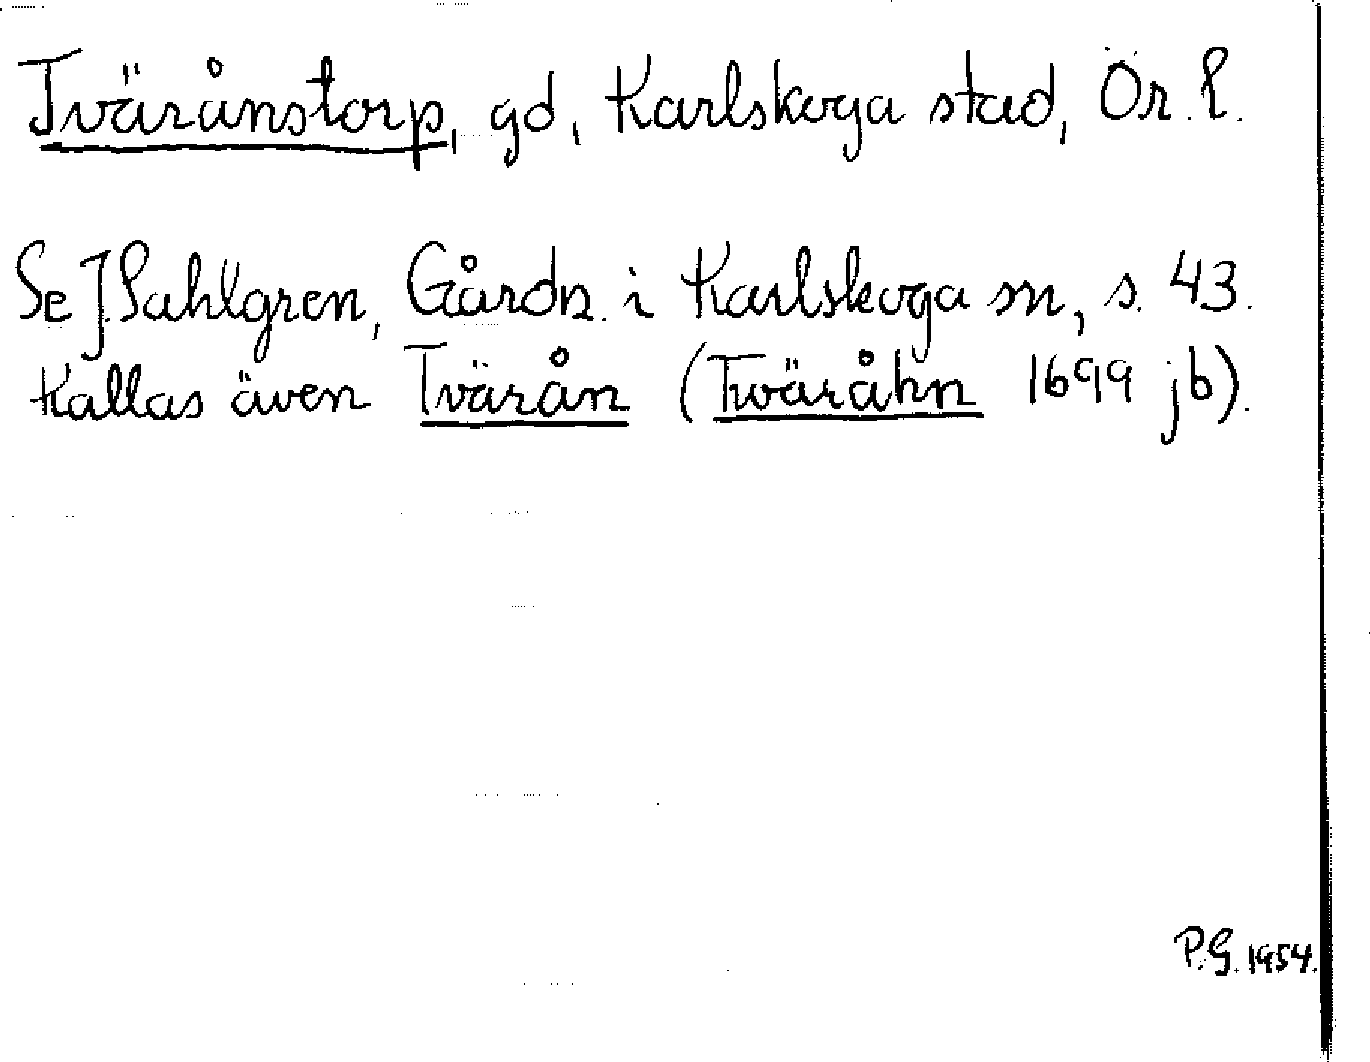 Tväránstorp, gd, Karlskoga stad, Ör. l.
Se J. Sahlgren, Gårdn. i Karlskoga sn, s. 43.
Kallas även Tvärån (Twäråhn 1699 jb).
P.G. 1954.